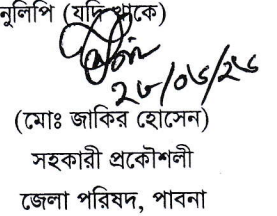 নুলিপি (যদি থাকে)
২৮/০৬/২৬
(মোঃ জাকির হোসেন)
সহকারী প্রকৌশলী
জেলা পরিষদ, পাবনা